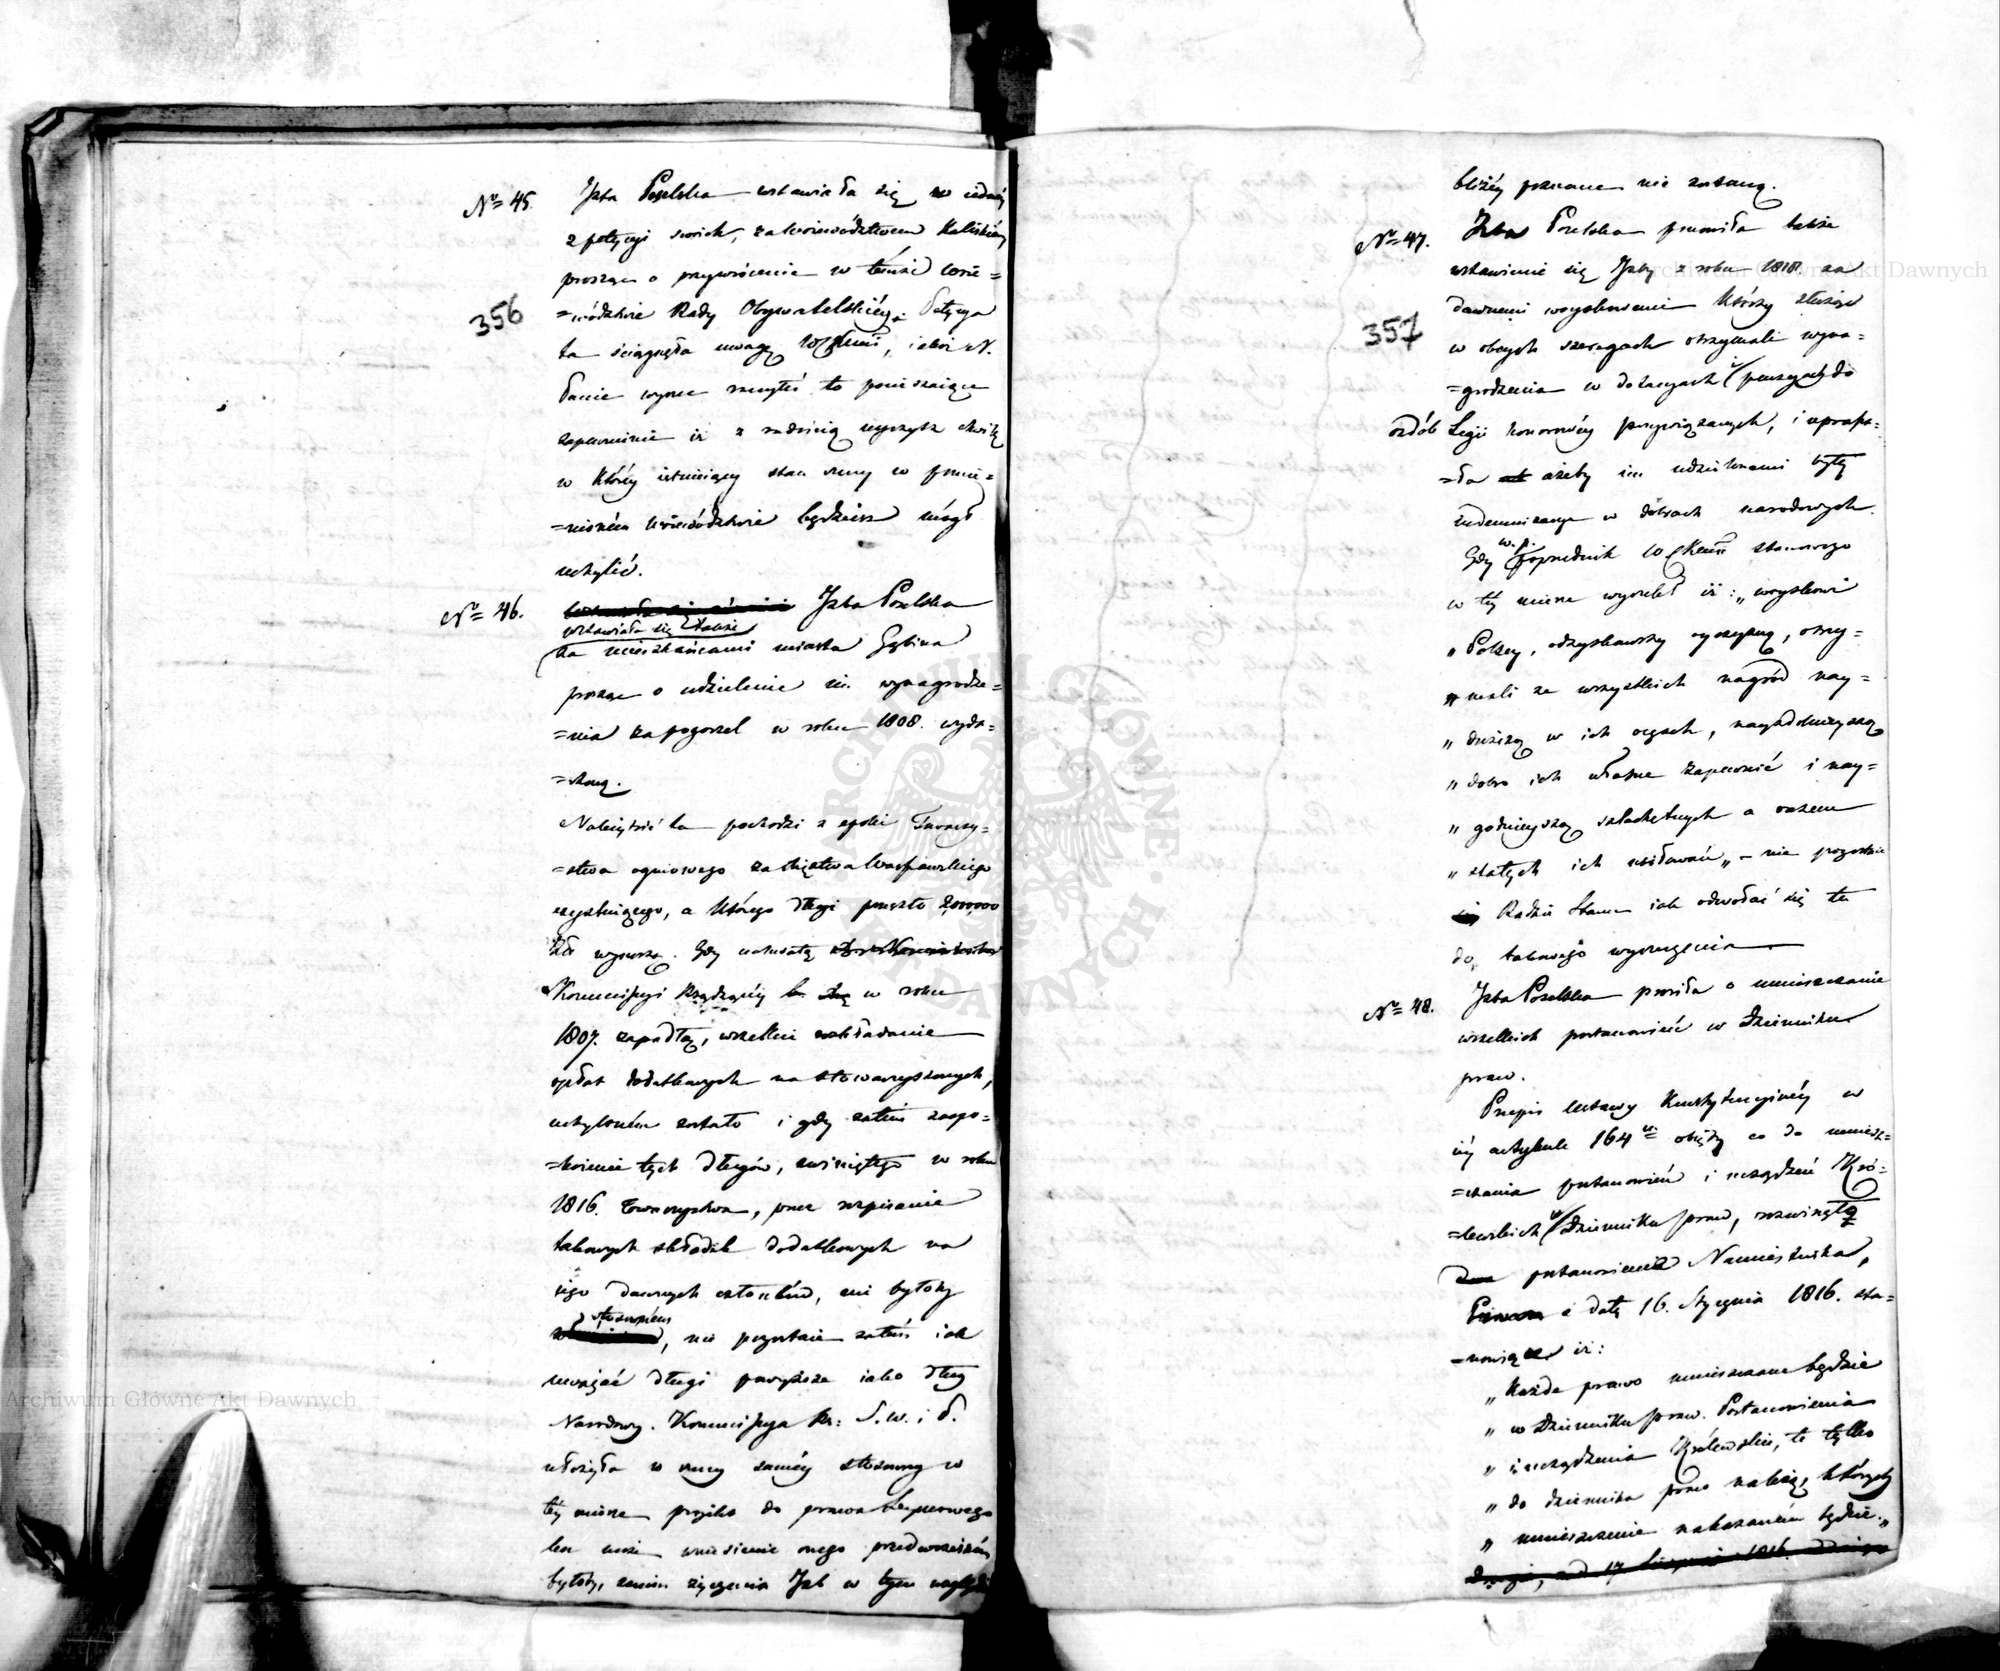 Nº 45. Izba Poselska wstawiała się w iednéy
z petycyi swoich, za Woiewództwem Kaliskiém
prosząc o przywrócenie w témże Woie=
356
=wództwie Rady Obywatelskiéy. Petycya
ta ściągnęła uwagę WKMci, i
łanie wyrzec raczyłeś to pocieszaiące
zapewnienie iż z radością uyrzysz chwilę
w któréy istnieiący stan rzeczy w pomie=
=nioném Woiewództwie będziesz mógł
uchylić.
Nº 46. Izba Poselska
wstawiała się także
za mieszkańcami miasta Gąbina
prosząc o udzielenie im wynagrodze=
=nia za pogorzel w roku 1808. wyda=
=rzoną.
Należytość ta pochodzi z epoki Towarzy=
=stwa ogniowego za Xięstwa Warszawskiego
exystuiącego, a którego długi przeszło 2,000,000
Zł. wynoszą. Gdy uchwałą
Kommissyi Rządzącéy w roku
1807. zapadłą, wszelkie rozkładanie
opłat dodatkowych na stowarzyszonych,
uchyloném zostało i gdy zatém zaspo=
=koienie tych długów, zwiniętego w roku
1816. Towarzystwa, przez rozpisanie
takowych składek dodatkowych na
iego dawnych członków, nie byłoby
stosowném
, nie pozostaie zatém iak
uważać długi powyższe iako dług
Narodowy. Kommissya Rz: S. W. i P.
ułożyła w rzeczy saméy stosowny w
téy mierze proiekt do prawa
lecz może wniesienie onego przedwcześném
byłoby, zanim życzenia Izb w tym względzie
bliżéy poznane nie zostaną.
Nº 47. Izba Poselska ponowiła także
wstawienie się Izby z roku 1818. za
357
dawnemi woyskowemi którzy służąc
w obcych szeregach otrzymali wyna=
=grodzenia w dotacyach i pensyach do
ozdób Legii honorowéy przywiązanych, i uprasza=
=ła ażeby im udzielonemi były
indemnizacye w dobrach narodowych.
Gdy w. p. Poprzednik WKMci stanowczo
w téy mierze wyrzekł iż: „woyskowi
„Polscy, odzyskawszy oyczyznę, otrzy=
„mali ze wszystkich nagród nay=
„droższą w ich oczach, naydokładnieyszą
„dobro ich własne zapewnić i nay=
„godnieyszą szlachetnych a razem
„stałych ich usiłowań„ – nie pozostaie
Radzie Stanu iak odwołać się tu
do takowego wyrzeczenia
Nº 48. Izba Poselska prosiła o umieszczanie
wszelkich postanowień w Dzienniku
praw.
Przepis Ustawy Konstytucyinéy w
iéy artykule 164m obięty co do umiesz=
=czania postanowień i urządzeń Kró=
=lewskich w Dzienniku praw, rozwinęło
postanowienie Namiestnika,
z daty 16. Stycznia 1816. sta=
=nowiąc iż:
„Każde prawo umieszczone będzie
„w Dzienniku praw. Postanowienia
„i urządzenia Królewskie, te tylko
„do dziennika praw należą, których
„umieszczenie nakazaném będzie.„